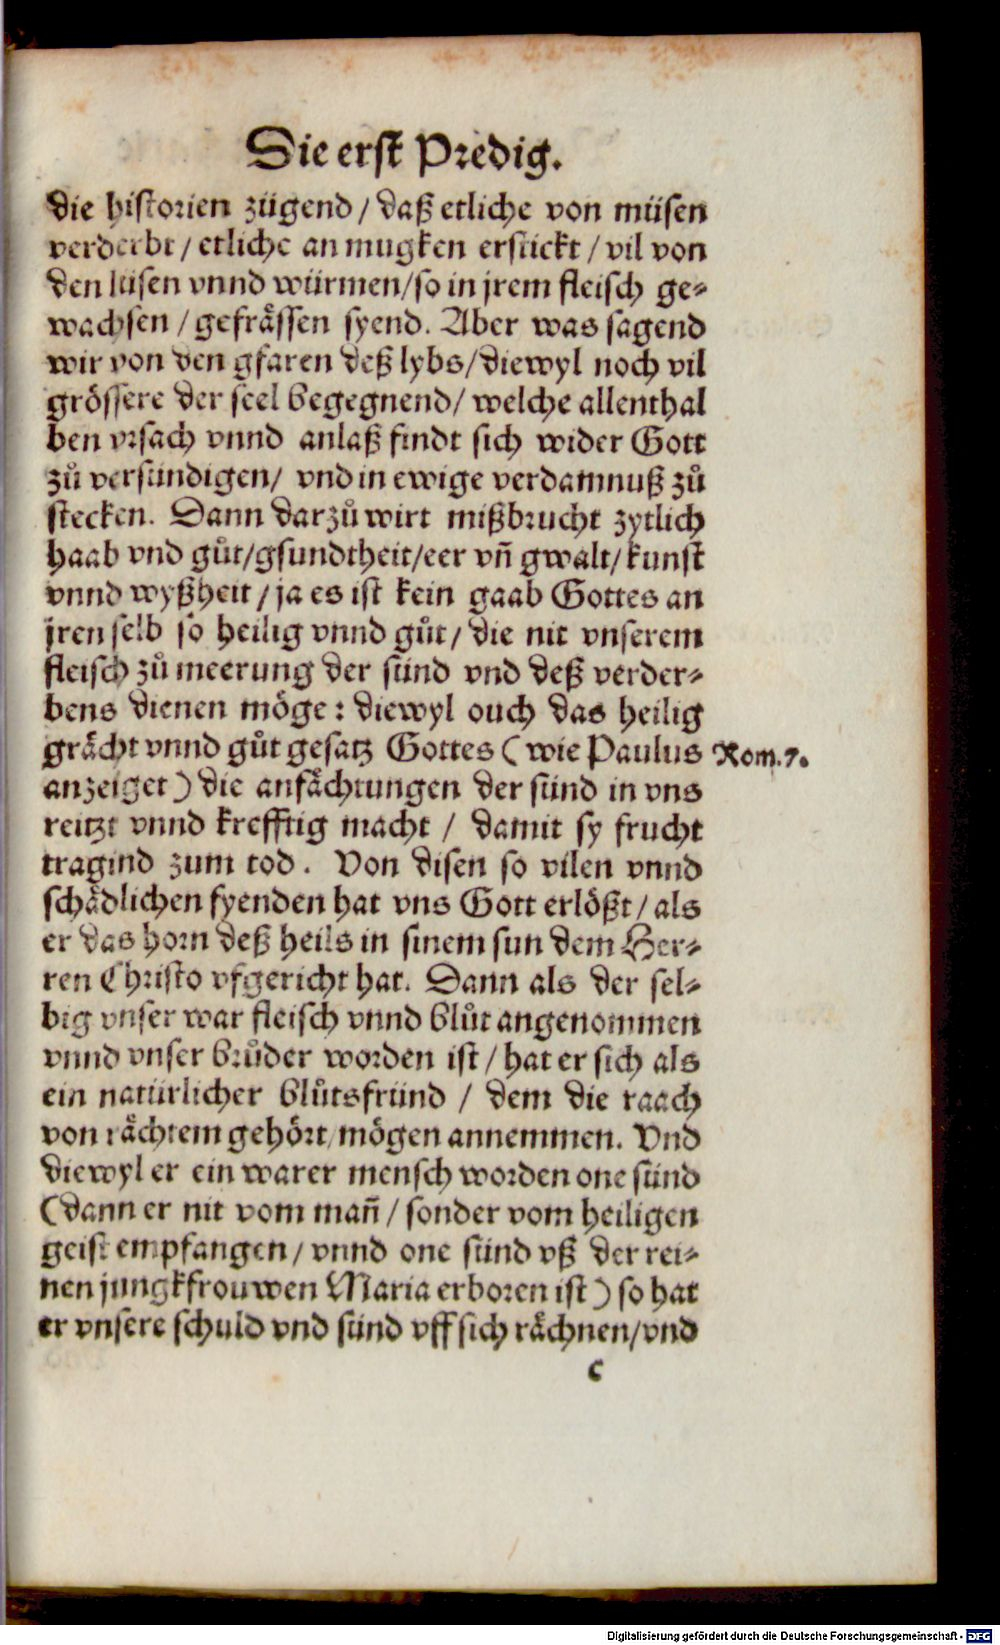 Die erst Predig.
die historien zügend / daß etliche von müsen
verderbt / etliche an mugken erstickt / vil von
den lüsen vnnd würmen / so in jrem fleisch ge⸗
wachsen / gefrässen syend. Aber was sagend
wir von den gfaren deß lybs / diewyl noch vil
grössere der seel begegnend / welche allenthal
ben vrsach vnnd anlaß findt sich wider Gott
zů versündigen / vnd in ewige verdamnuß zů
stecken. Dann darzů wirt mißbrucht zytlich
haab vnd gůt / gsundtheit / eer vñ gwalt / kunst
vnnd wyßheit / ja es ist kein gaab Gottes an
jren selb so heilig vnnd gůt / die nit vnserem
fleisch zů meerung der sünd vnd deß verder⸗
bens dienen möge: diewyl ouch das heilig
grächt vnnd gůt gesatz Gottes ( wie Paulus
Rom. 7.
anzeiget ) die anfächtungen der sünd in vns
reitzt vnnd krefftig macht / damit sy frucht
tragind zum tod. Von disen so vilen vnnd
schädlichen fyenden hat vns Gott erlößt / als
er das horn deß heils in sinem sun dem Her⸗
ren Christo vfgericht hat. Dann als der sel⸗
big vnser war fleisch vnnd blůt angenommen
vnnd vnser brůder worden ist / hat er sich als
ein natürlicher blůtsfründ / dem die raach
von rächtem gehört / mögen annemmen. Vnd
diewyl er ein warer mensch worden one sünd
( dann er nit vom mañ / sonder vom heiligen
geist empfangen / vnnd one sünd vß der rei⸗
nen jungkfrouwen Maria erboren ist ) so hat
er vnsere schuld vnd sünd vff sich rächnen / vnd
c
Digitalisierung gefördert durch die Deutsche Forschungsgemeinschaft - DFG